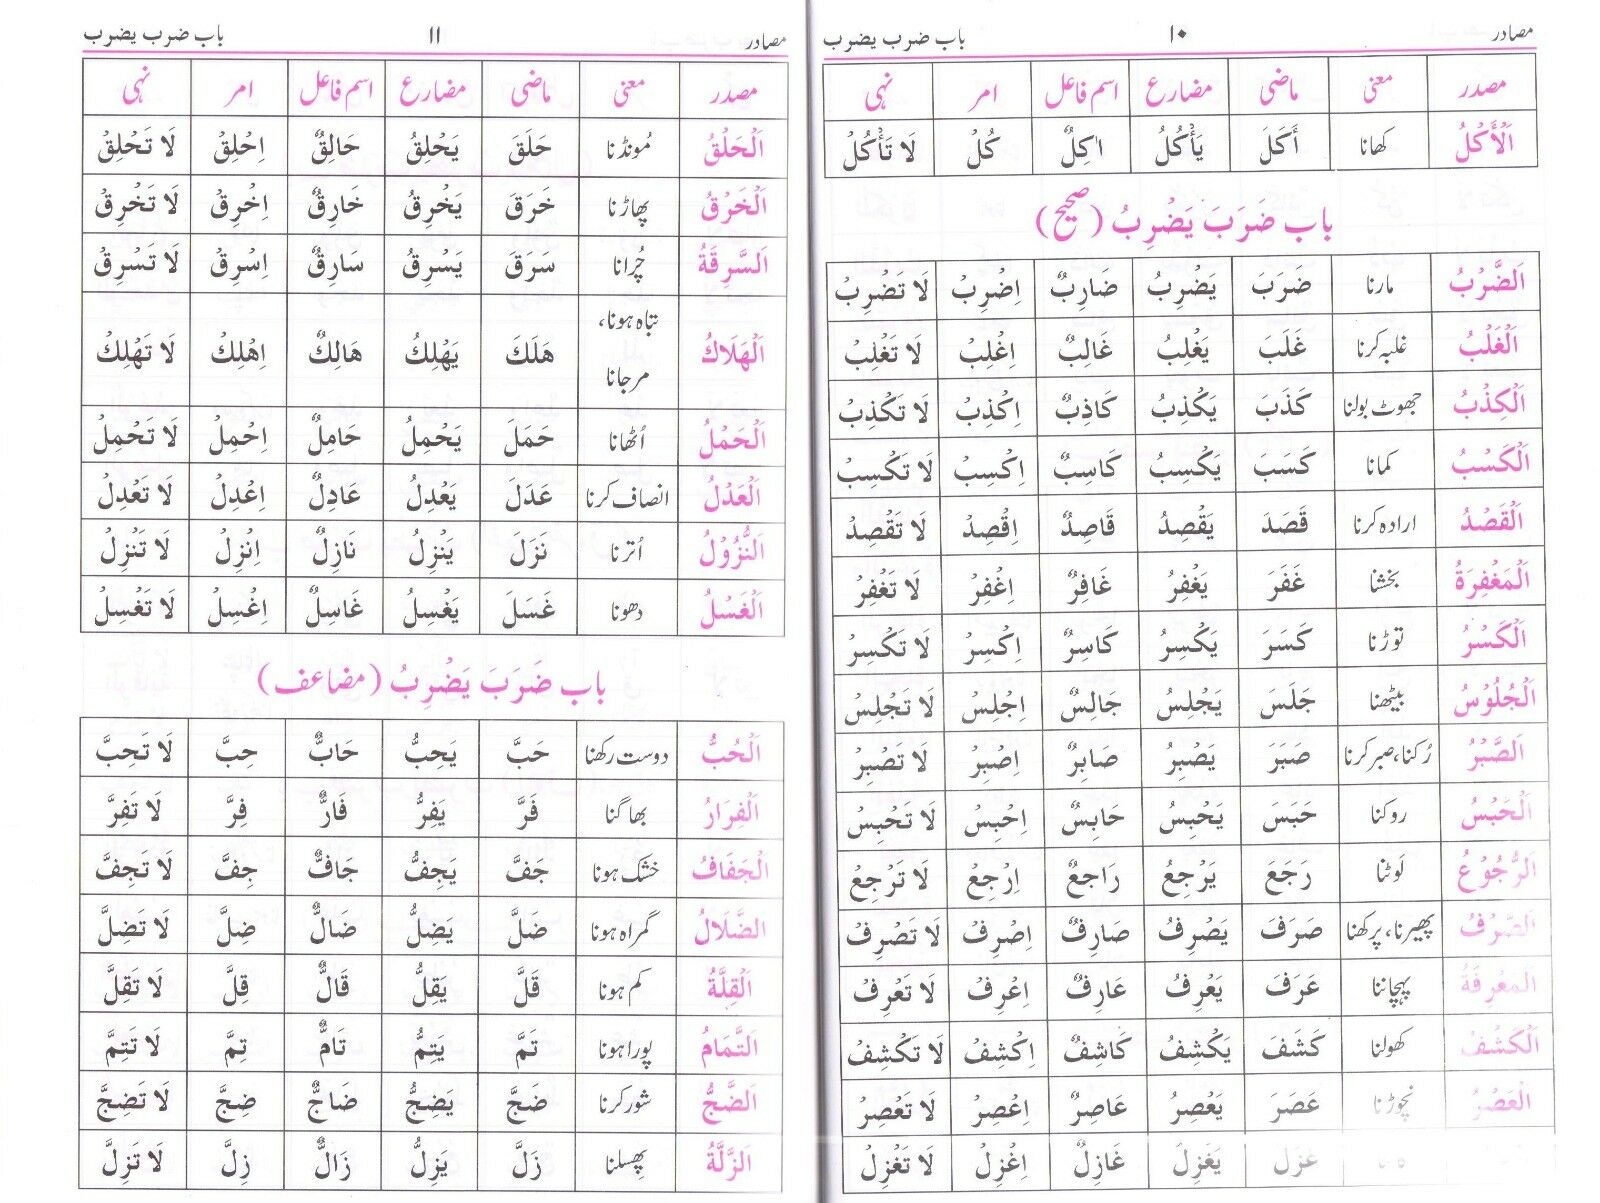 مصادر ۱۰ باب ضرب یضرب
مصدر معنی ماضی مضارع اسم فاعل امر نہی
اَلْأَكْلُ کھانا أَكَلَ يَأْكُلُ اٰكِلٌ كُلْ لَا تَأْكُلْ
باب ضَرَبَ يَضْرِبُ (صحیح)
اَلضَّرْبُ مارنا ضَرَبَ يَضْرِبُ ضَارِبٌ اِضْرِبْ لَا تَضْرِبْ
اَلْغَلْبُ غلبہ کرنا غَلَبَ يَغْلِبُ غَالِبٌ اِغْلِبْ لَا تَغْلِبْ
اَلْكِذْبُ جھوٹ بولنا كَذَبَ يَكْذِبُ كَاذِبٌ اِكْذِبْ لَا تَكْذِبْ
اَلْكَسْبُ کمانا كَسَبَ يَكْسِبُ كَاسِبٌ اِكْسِبْ لَا تَكْسِبْ
اَلْقَصْدُ ارادہ کرنا قَصَدَ يَقْصِدُ قَاصِدٌ اِقْصِدْ لَا تَقْصِدْ
اَلْمَغْفِرَةُ بخشنا غَفَرَ يَغْفِرُ غَافِرٌ اِغْفِرْ لَا تَغْفِرْ
اَلْكَسْرُ توڑنا كَسَرَ يَكْسِرُ كَاسِرٌ اِكْسِرْ لَا تَكْسِرْ
اَلْجُلُوْسُ بیٹھنا جَلَسَ يَجْلِسُ جَالِسٌ اِجْلِسْ لَا تَجْلِسْ
اَلصَّبْرُ رُکنا، صبر کرنا صَبَرَ يَصْبِرُ صَابِرٌ اِصْبِرْ لَا تَصْبِرْ
اَلْحَبْسُ روکنا حَبَسَ يَحْبِسُ حَابِسٌ اِحْبِسْ لَا تَحْبِسْ
اَلرُّجُوْعُ لَوٹنا رَجَعَ يَرْجِعُ رَاجِعٌ اِرْجِعْ لَا تَرْجِعْ
اَلصَّرْفُ پھیرنا، پرکھنا صَرَفَ يَصْرِفُ صَارِفٌ اِصْرِفْ لَا تَصْرِفْ
اَلْمَعْرِفَةُ پہچاننا عَرَفَ يَعْرِفُ عَارِفٌ اِعْرِفْ لَا تَعْرِفْ
اَلْكَشْفُ کھولنا كَشَفَ يَكْشِفُ كَاشِفٌ اِكْشِفْ لَا تَكْشِفْ
اَلْعَصْرُ نچوڑنا عَصَرَ يَعْصِرُ عَاصِرٌ اِعْصِرْ لَا تَعْصِرْ
غَزَلَ يَغْزِلُ غَازِلٌ اِغْزِلْ لَا تَغْزِلْ
مصادر ۱۱ باب ضرب یضرب
مصدر معنی ماضی مضارع اسم فاعل امر نہی
اَلْحَلْقُ مُونڈنا حَلَقَ يَحْلِقُ حَالِقٌ اِحْلِقْ لَا تَحْلِقْ
اَلْخَرْقُ پھاڑنا خَرَقَ يَخْرِقُ خَارِقٌ اِخْرِقْ لَا تَخْرِقْ
اَلسَّرِقَةُ چُرانا سَرَقَ يَسْرِقُ سَارِقٌ اِسْرِقْ لَا تَسْرِقْ
اَلْهَلَاكُ تباہ ہونا، مرجانا هَلَكَ يَهْلِكُ هَالِكٌ اِهْلِكْ لَا تَهْلِكْ
اَلْحَمْلُ اُٹھانا حَمَلَ يَحْمِلُ حَامِلٌ اِحْمِلْ لَا تَحْمِلْ
اَلْعَدْلُ انصاف کرنا عَدَلَ يَعْدِلُ عَادِلٌ اِعْدِلْ لَا تَعْدِلْ
اَلنُّزُوْلُ اُترنا نَزَلَ يَنْزِلُ نَازِلٌ اِنْزِلْ لَا تَنْزِلْ
اَلْغَسْلُ دھونا غَسَلَ يَغْسِلُ غَاسِلٌ اِغْسِلْ لَا تَغْسِلْ
باب ضَرَبَ يَضْرِبُ (مضاعف)
اَلْحُبُّ دوست رکھنا حَبَّ يَحِبُّ حَابٌّ حِبَّ لَا تَحِبَّ
اَلْفِرَارُ بھاگنا فَرَّ يَفِرُّ فَارٌّ فِرَّ لَا تَفِرَّ
اَلْجَفَافُ خشک ہونا جَفَّ يَجِفُّ جَافٌّ جِفَّ لَا تَجِفَّ
اَلضَّلَالُ گمراہ ہونا ضَلَّ يَضِلُّ ضَالٌّ ضِلَّ لَا تَضِلَّ
اَلْقِلَّةُ کم ہونا قَلَّ يَقِلُّ قَالٌّ قِلَّ لَا تَقِلَّ
اَلتَّمَامُ پورا ہونا تَمَّ يَتِمُّ تَامٌّ تِمَّ لَا تَتِمَّ
اَلضَّجُّ شور کرنا ضَجَّ يَضِجُّ ضَاجٌّ ضِجَّ لَا تَضِجَّ
اَلزَّلَّةُ پھسلنا زَلَّ يَزِلُّ زَالٌّ زِلَّ لَا تَزِلَّ